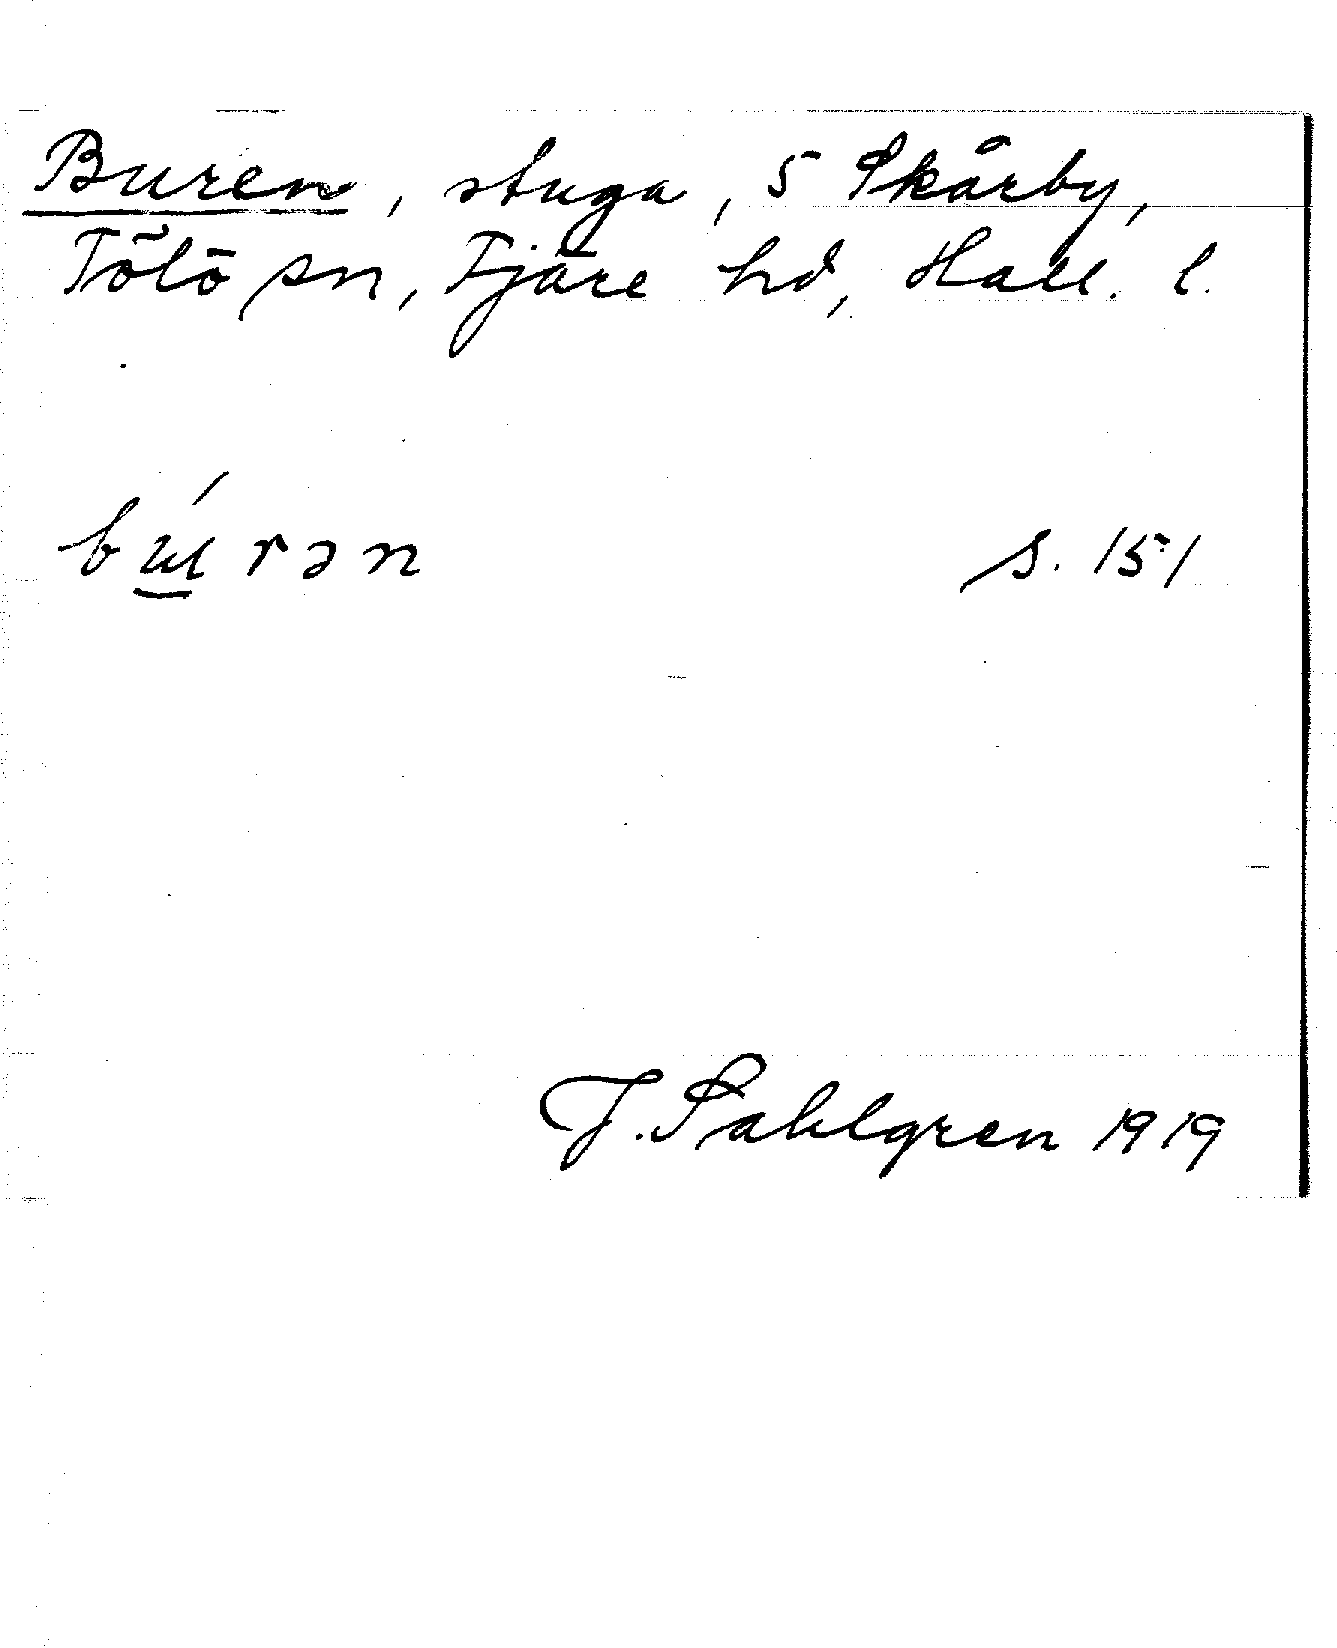 Buren, stuga, 5 Skårby,
Tölö sn, Fjäre hd, Hall. l.
bú̲rən s. 151
J. Sahlgren 1919